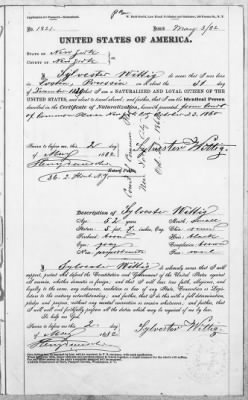 No. 1821. Issued May 3/82
UNITED STATES OF AMERICA.
STATE OF New York
COUNTY OF New York
I, Sylvester Wittig do swear that I was born
in Prussia on or about the 31 day
of December 1829; that I am a NATURALIZED AND LOYAL CITIZEN OF THE
UNITED STATES, and about to travel abroad; and further, that I am the Identical Person
described in the Certificate of Naturalization, herewith presented, from Court
of Common Pleas New York October 23, 1860
Sworn to before me, this 2 day
of May 1882
Sylvester Wittig
Notary Public
Description of Sylvester Wittig
Age: 52 years
Mouth: small
Stature: 5 feet 7 inches, Eng.
Chin:
Forehead:
Hair: black
Eyes: gray
Complexion: brown
Nose: proportionate
Face: oval
I, Sylvester Wittig do solemnly swear that I will
support, protect and defend the Constitution and Government of the United States against
all enemies, whether domestic or foreign; and that I will bear true faith, allegiance, and
loyalty to the same, any ordinance, resolution or law of any State, Convention or Legis-
lature to the contrary notwithstanding; and further, that I do this with a full determination,
pledge and purpose, without any mental reservation or evasion whatsoever; and further, that
I will well and faithfully perform all the duties which may be required of me by law.
So help me God.
Sworn to before me, this 2 day
of May 1882
Sylvester Wittig